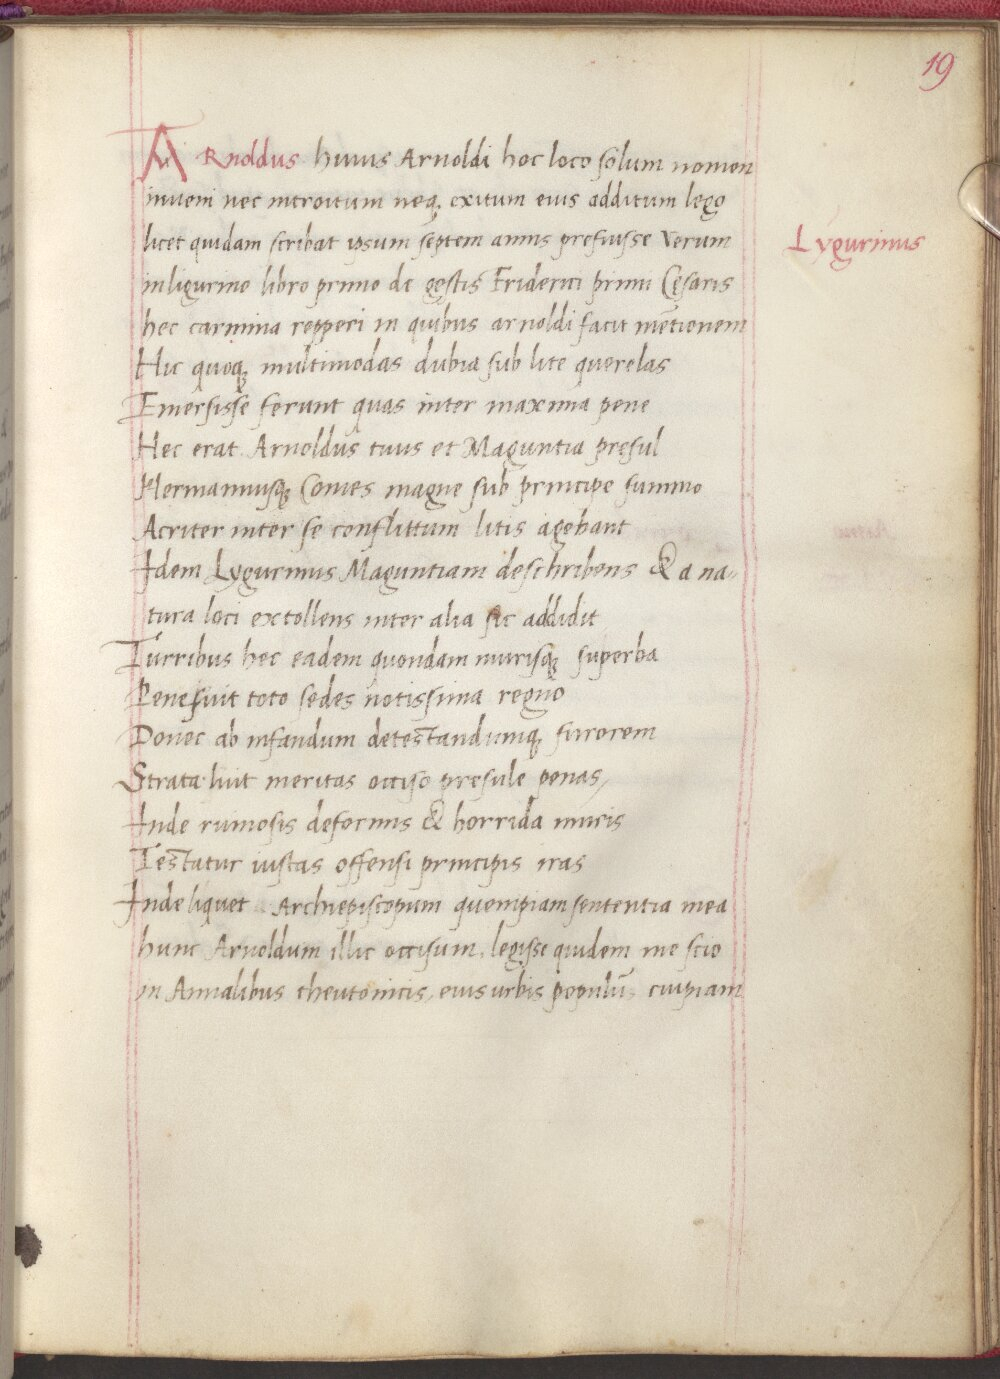 19
ARnoldus huius Arnoldi hoc loco solum nomen
inueni nec introitum neq; exitum eius additum lego
licet quidam scribat ipsum septem annis prefuisse Verum
Lygurinus
in ligurino libro primo de gestis Friderici primi Cęsaris
hec carmina repperi in quibus arnoldi facit mētionem
Hic quoq; multimodas dubia sub lite querelas
Emersisse ferunt quas inter maxima pene
Hec erat Arnoldus tuus et Maguntia pręsul
Hermannusq; Comes magne sub principe summo
Acriter inter se conflittum litis agebant
Idem Lygurinus Maguntiam deschribens & a na-
tura loci extollens inter alia sic addidit
Turribus hec eadem quondam murisq; superba
Pene fuit toto sedes notissima regno
Donec ob infandum detestandumq; furorem
Strata luit meritas occiso pręsule penas,
Inde ruinosis deformis & horrida muris
Testatur iustas offensi principis iras
Inde liquet Archiepiscopum quempiam sententia mea
hunc Arnoldum illic occisum, legisse quidem me scio
in Annalibus theutonicis, eius urbis populū cuipiam